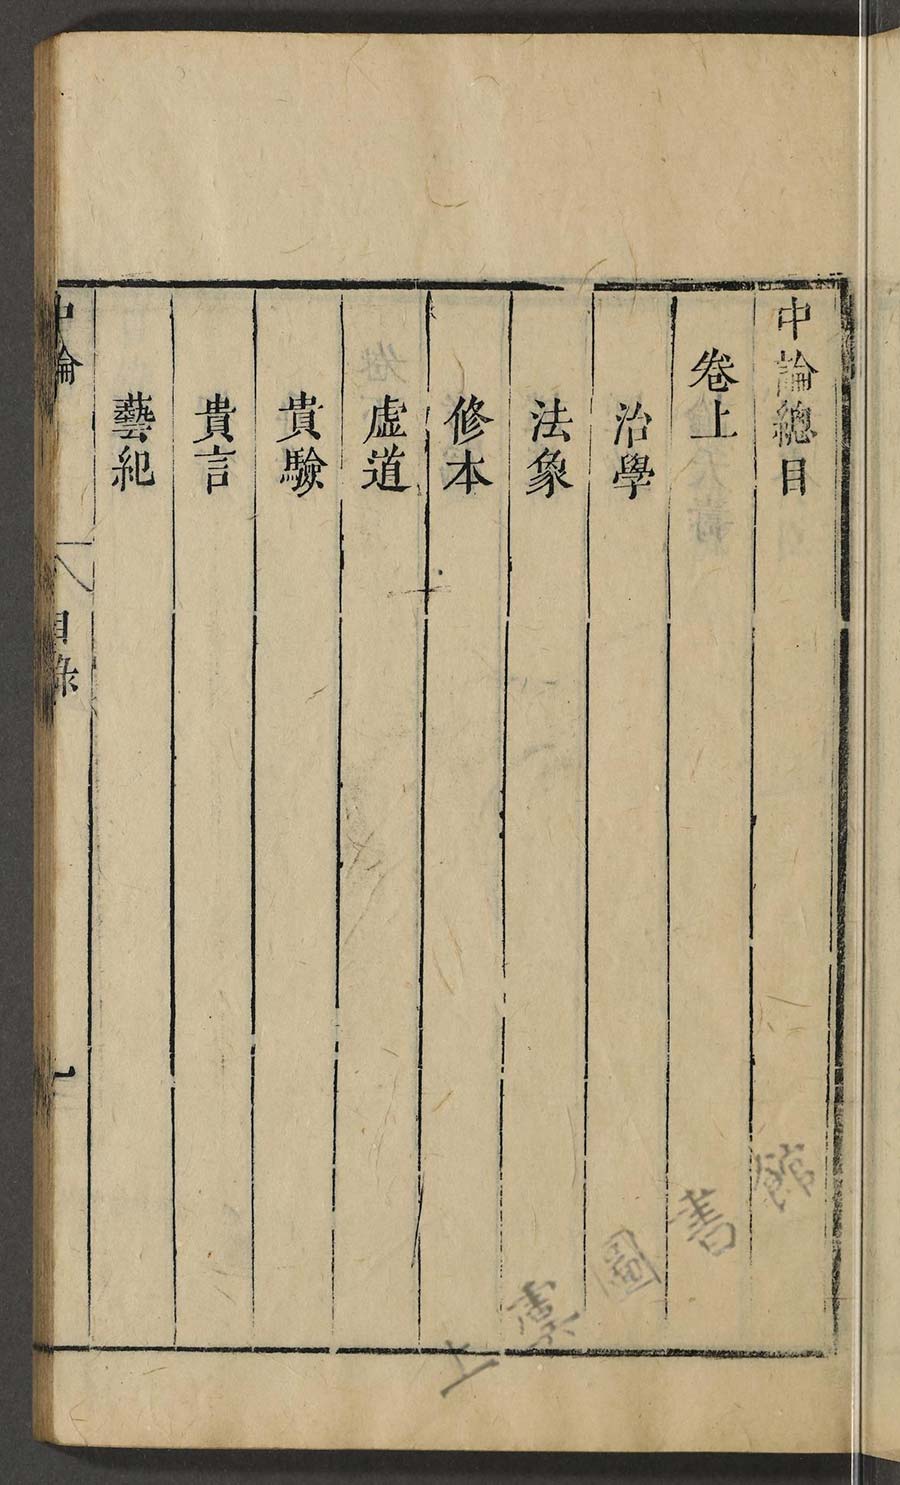 中論總目
卷上
治學
法象
修本
虛道
貴驗
貴言
藝紀
中論
目錄
上虞圖書館